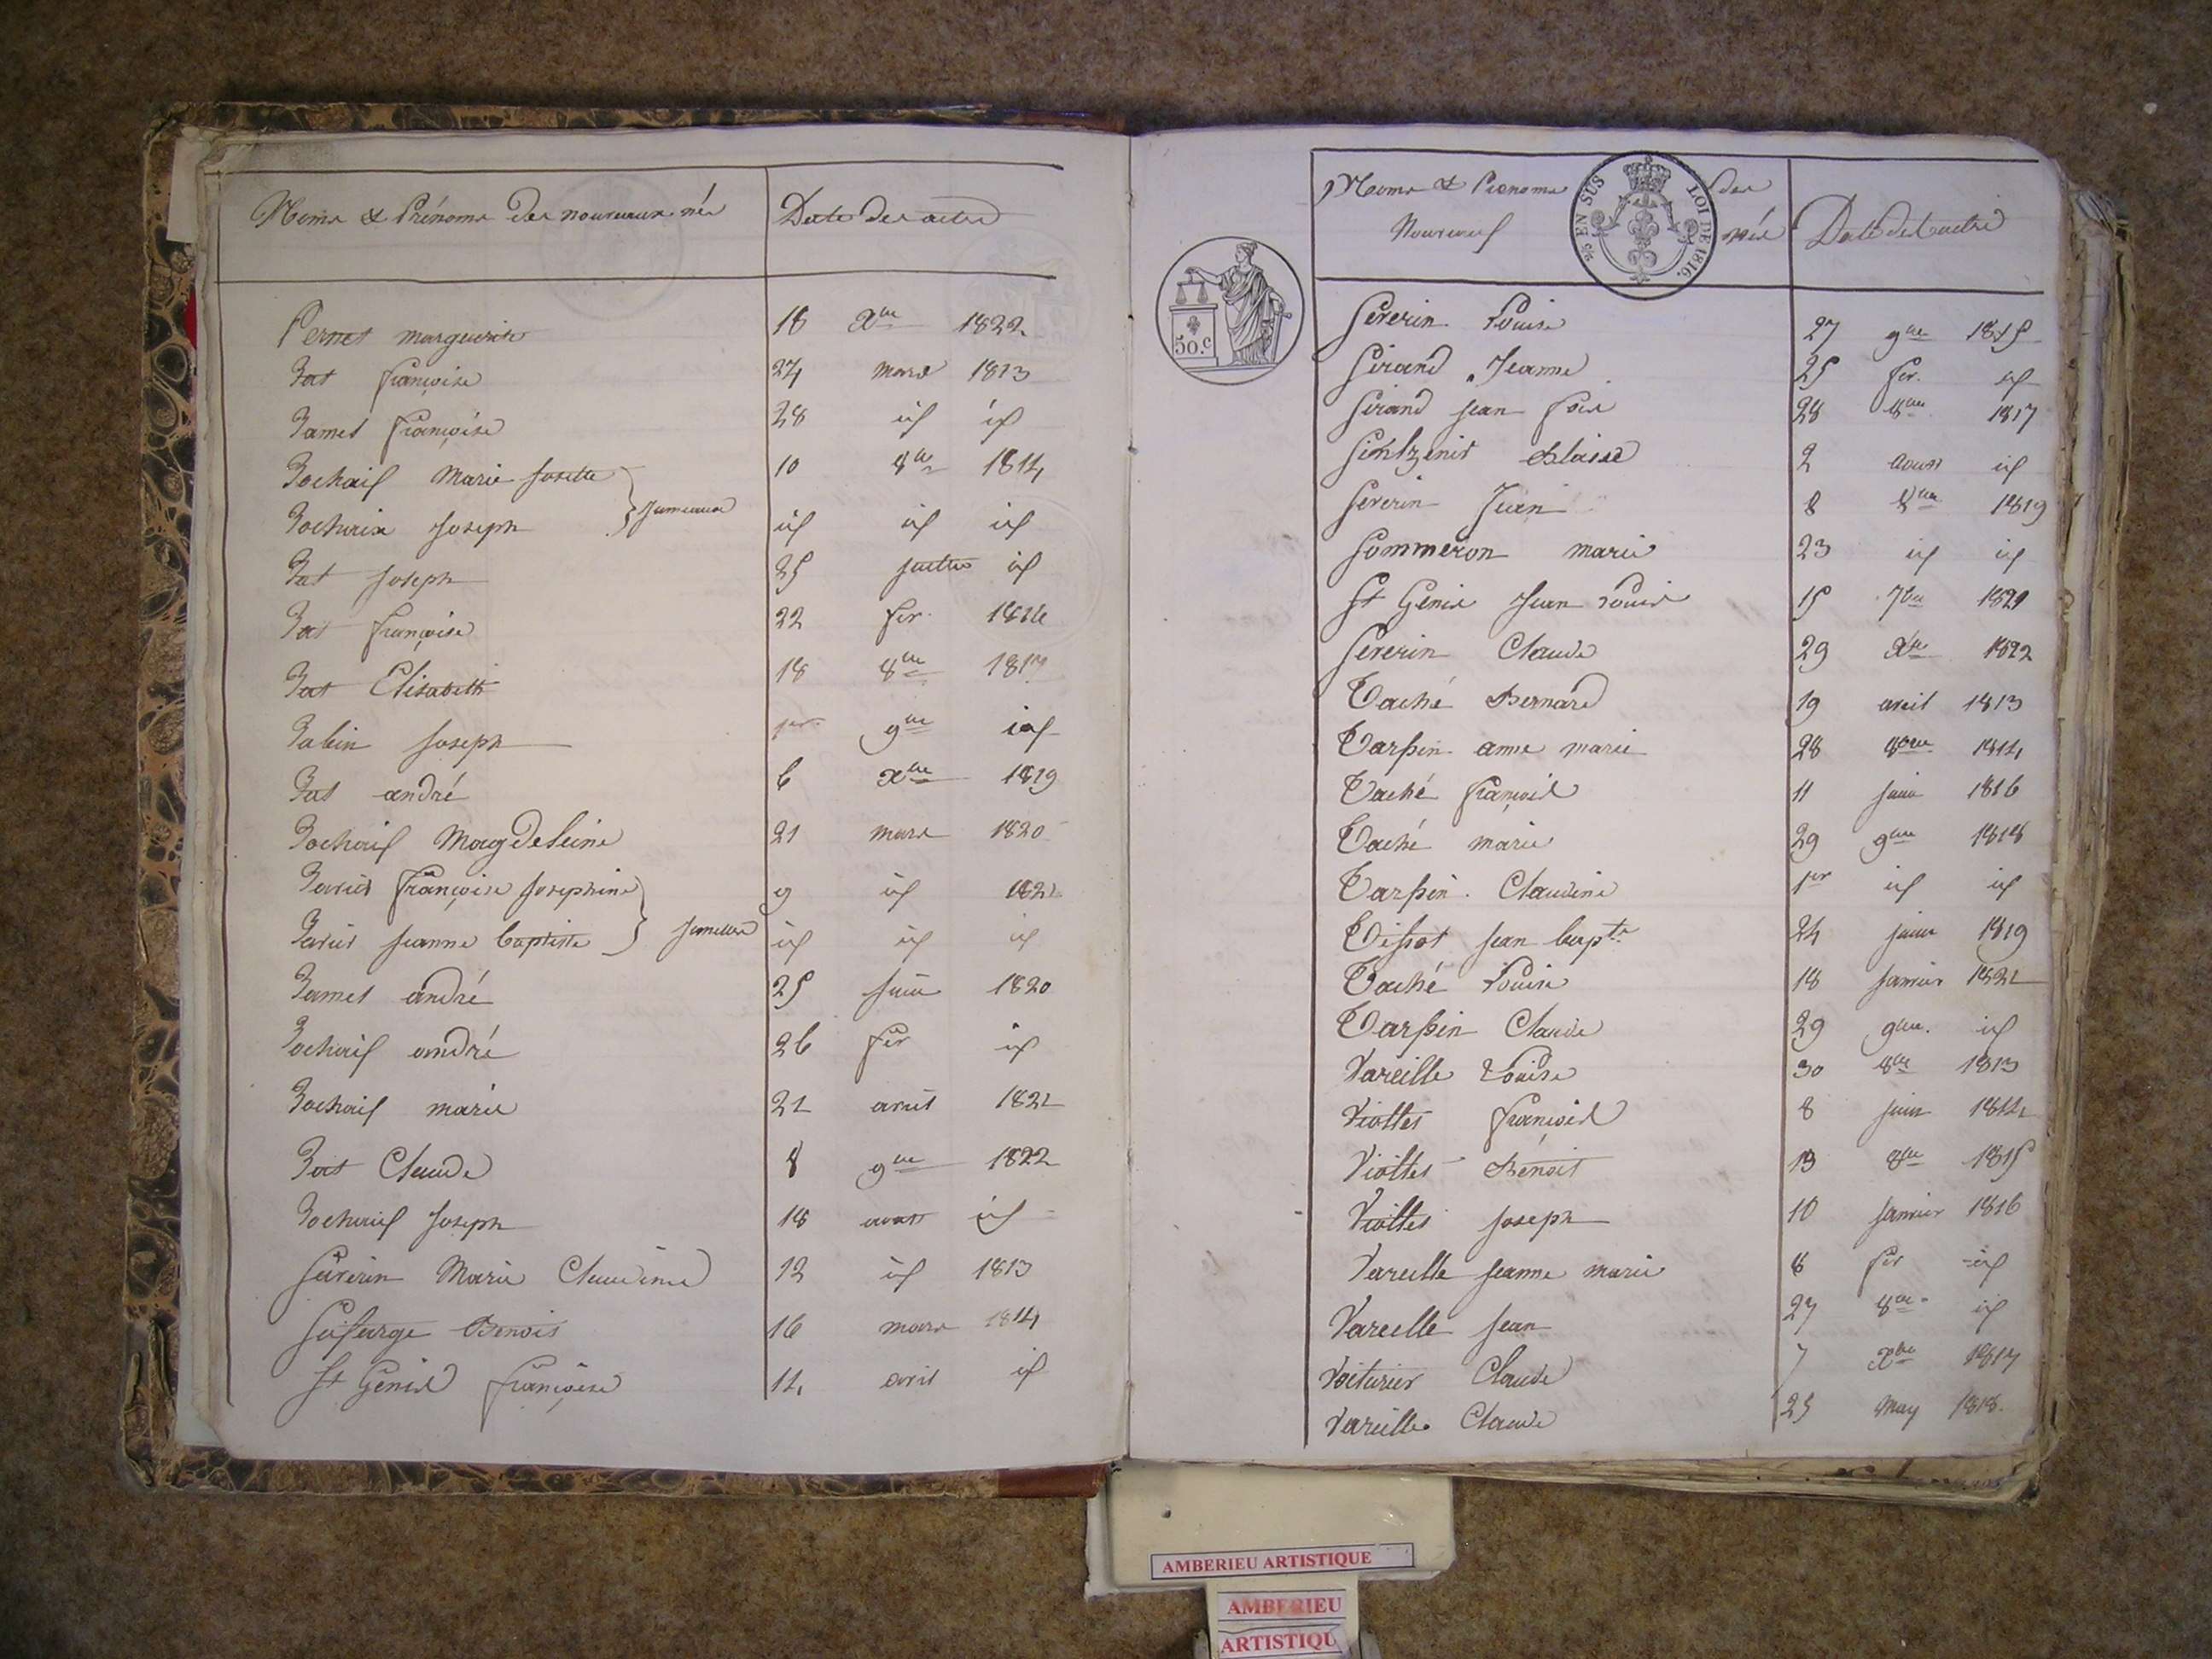 Noms & Prénoms des nouveaux nés Date des actes
Pernet marguerite 18 Xbre 1822
Rat françoise 24 mars 1813
Ramet françoise 28 id id
Rochaix Marie Josette 10 8bre 1814
jumeaux
Rochaix Joseph id id id
Rat Joseph 25 juillet id
Rat françoise 22 fer. 1816
Rat Elisabeth 18 8bre 1817
Rabin Joseph 1er 9bre id
Rat andré 6 Xbre 1819
Rochaix Magdeleine 21 mars 1820
Ravier françoise Josephine 9 id 1821
jumelles
Ravier Jeanne baptiste id id id
Ramet andré 25 juin 1820
Rochaix andré 26 fer id
Rochaix marie 21 avril 1821
Rat Claude 8 9bre 1822
Rochaix Joseph 18 aoust id
Séverin Marie Claudine 12 id 1813
Benoit 16 mars 1814
St Genis françoise 14 avril id
Noms & Prenoms des
Nouveaux nés Date des actes
% EN SUS LOI DE 1816.
50.c
Severin Louise 27 9bre 1815
Sirand Jeanne 25 fer. id
Sirand jean fois 28 8bre 1817
Blaise 2 aoust id
Severin Jean 8 8bre 1819
Sommeron marie 23 id id
St Genis Jean Louis 15 7bre 1821
Severin Claude 29 Xbre 1822
Taché Bernard 19 avril 1813
Tarpin anne marie 28 8bre 1814
Taché françois 11 juin 1816
Taché marie 29 9bre 1818
Tarpin Claudine 1er id id
Tissot jean bapte 24 juin 1819
Taché Louise 18 janvier 1821
Tarpin Claude 29 9bre. id
Vareille Louise 30 8bre 1813
Viottet françois 8 juin 1814
Viottet Benoit 13 8bre 1815
Viottet Joseph 10 janvier 1816
Vareille jeanne marie 8 fer id
Vareille jean 27 8bre id
Voiturier Claude 7 Xbre 1817
Vareille Claude 25 may 1818.
AMBERIEU ARTISTIQUE
AMBERIEU
ARTISTIQU